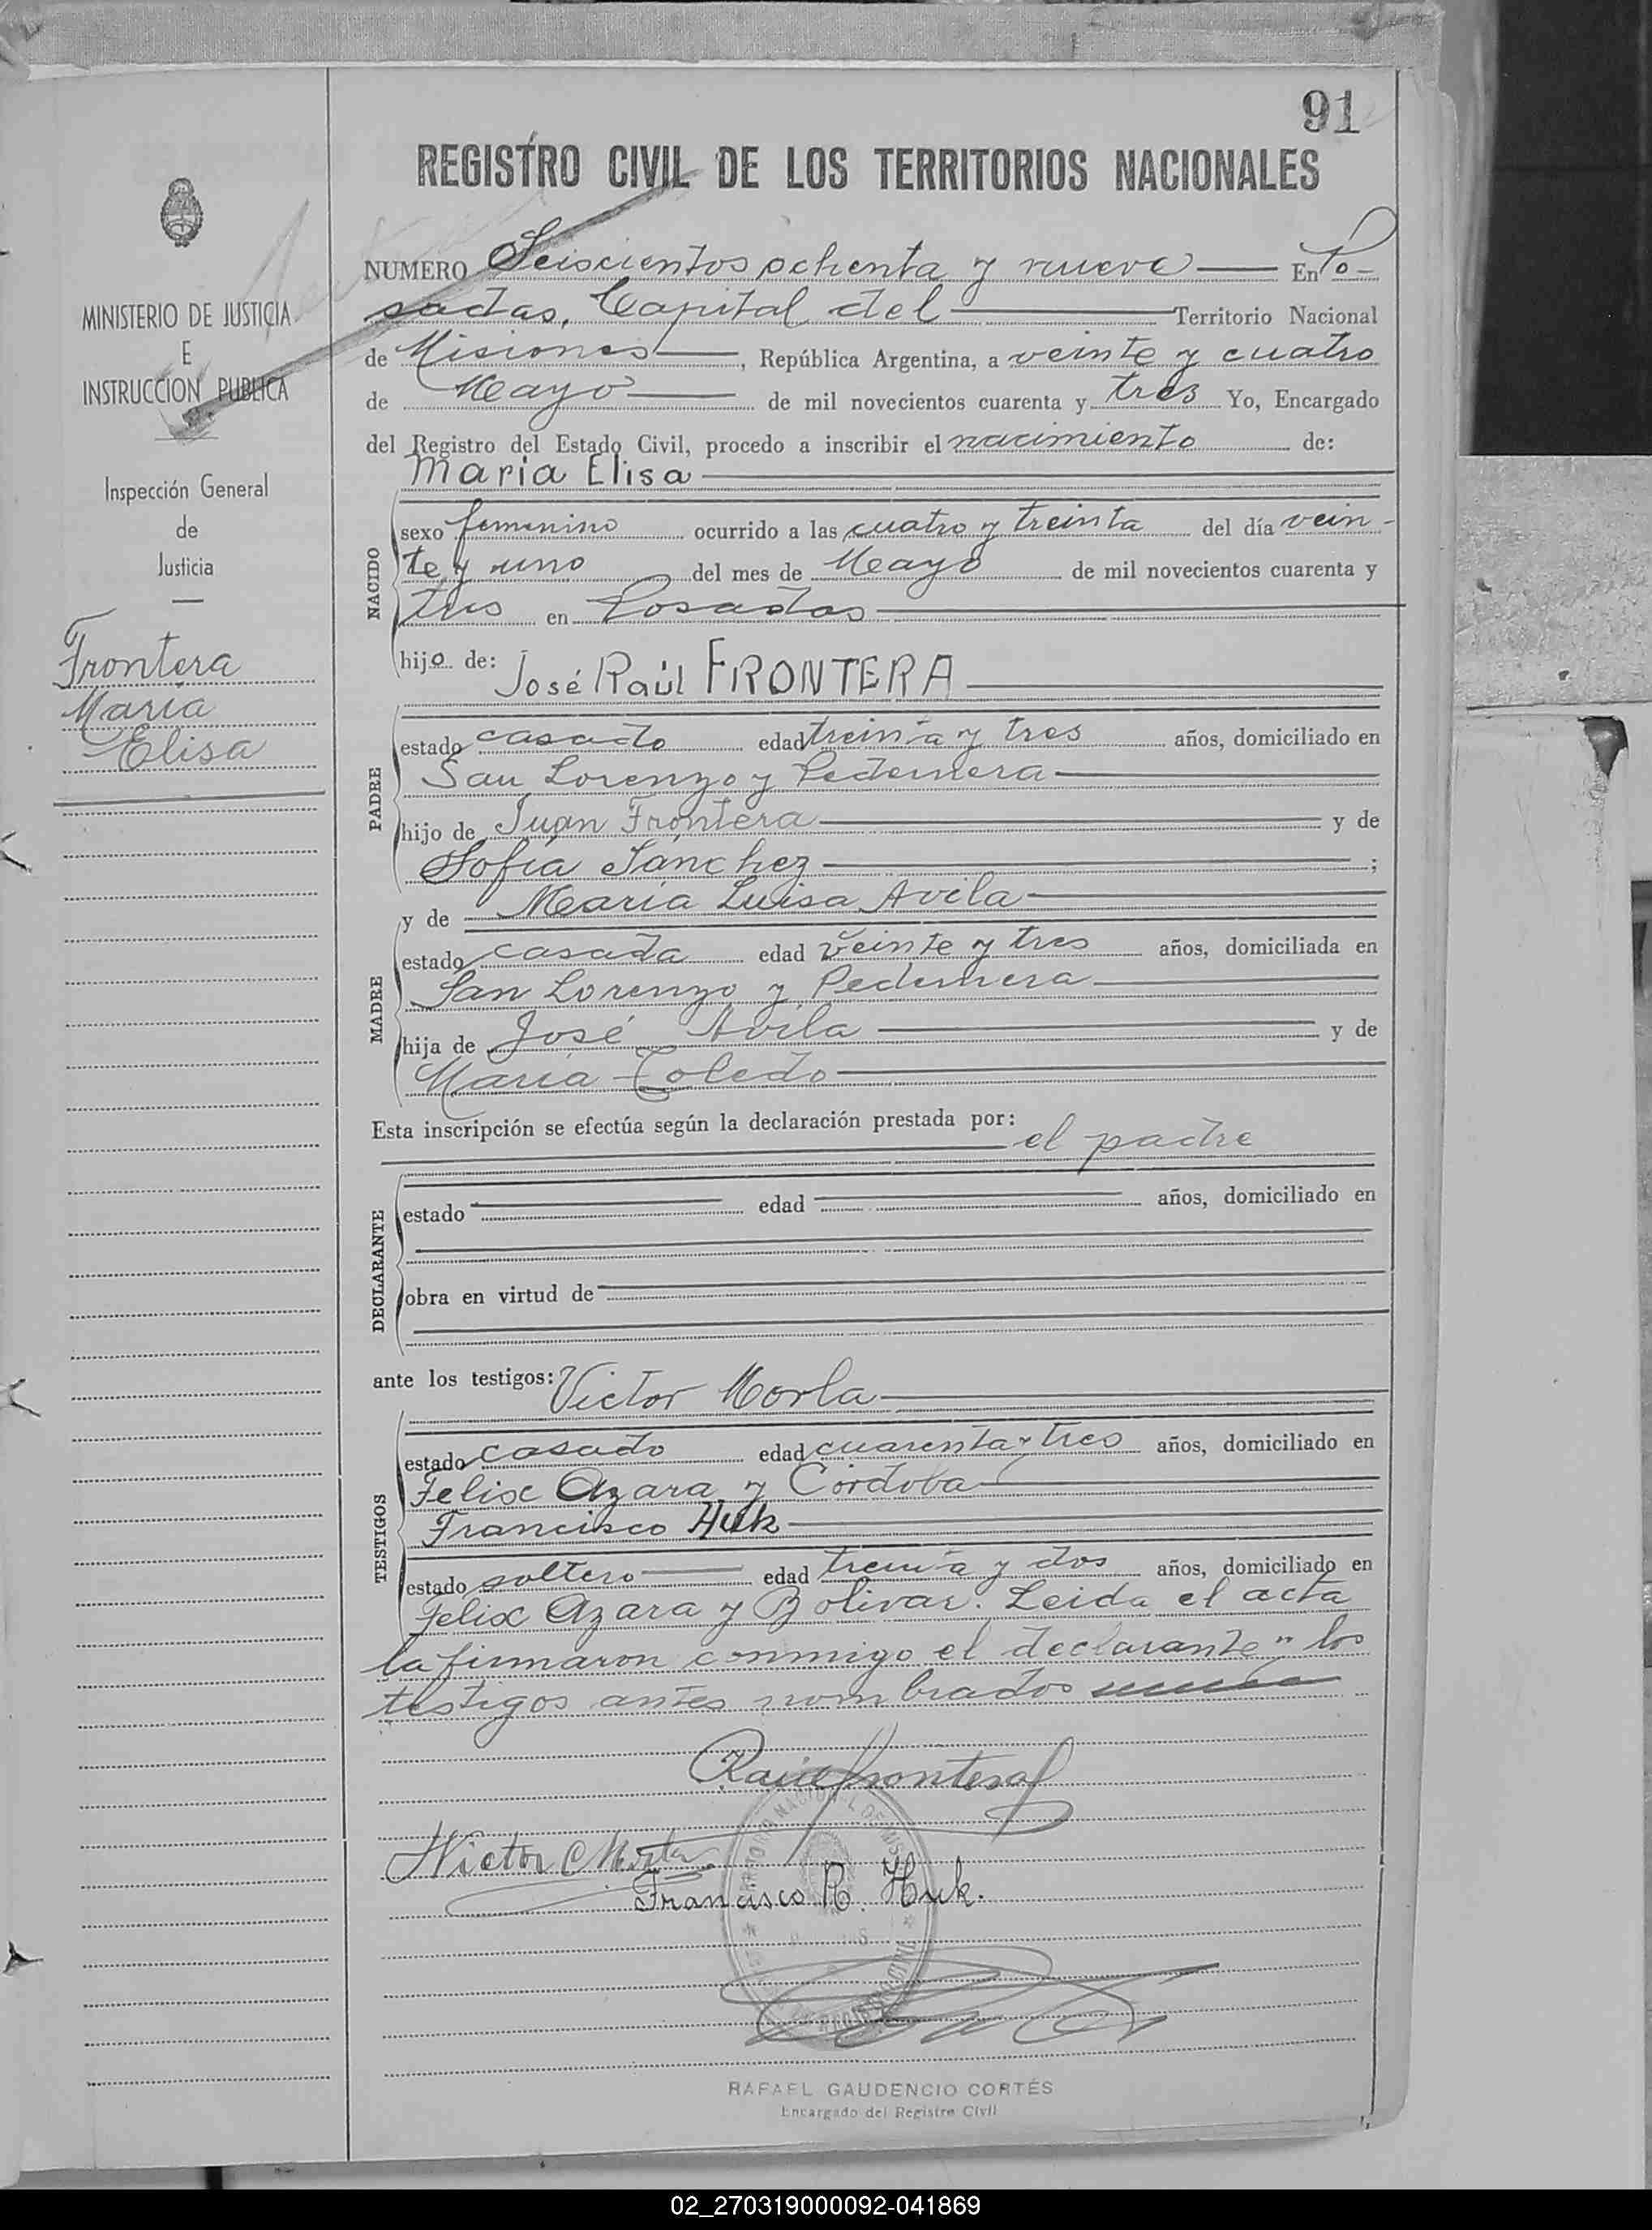 91
REGISTRO CIVIL DE LOS TERRITORIOS NACIONALES
MINISTERIO DE JUSTICIA
E
INSTRUCCION PUBLICA
Inspección General
de
Justicia
Frontera
María
Elisa
NUMERO Seiscientos ochenta y nueve En Po-
sadas, Capital del Territorio Nacional
de Misiones, República Argentina, a veinte y cuatro
de Mayo de mil novecientos cuarenta y tres Yo, Encargado
del Registro del Estado Civil, procedo a inscribir el nacimiento de:
María Elisa
NACIDO
sexo femenino ocurrido a las cuatro y treinta del día vein-
te y uno del mes de Mayo de mil novecientos cuarenta y
tres en Posadas
hijo de: José Raúl FRONTERA
PADRE
estado casado edad treinta y tres años, domiciliado en
San Lorenzo y Pedernera
hijo de Juan Frontera y de
Sofía Sánchez ;
y de María Luisa Avila
MADRE
estado casada edad veinte y tres años, domiciliada en
San Lorenzo y Pedernera
hija de José Avila y de
María Toledo
Esta inscripción se efectúa según la declaración prestada por:
el padre
DECLARANTE
estado edad años, domiciliado en
obra en virtud de
ante los testigos: Victor Morla
TESTIGOS
estado casado edad cuarenta y tres años, domiciliado en
Felix Azara y Córdoba
Francisco Huk
estado soltero edad treinta y dos años, domiciliado en
Felix Azara y Bolivar. Leida el acta
la firmaron conmigo el declarante y los
testigos antes nombrados
Raúl Frontera
Victor Morla
Francisco R. Huk.
RAFAEL GAUDENCIO CORTÉS
Encargado del Registro Civil
02_270319000092-041869